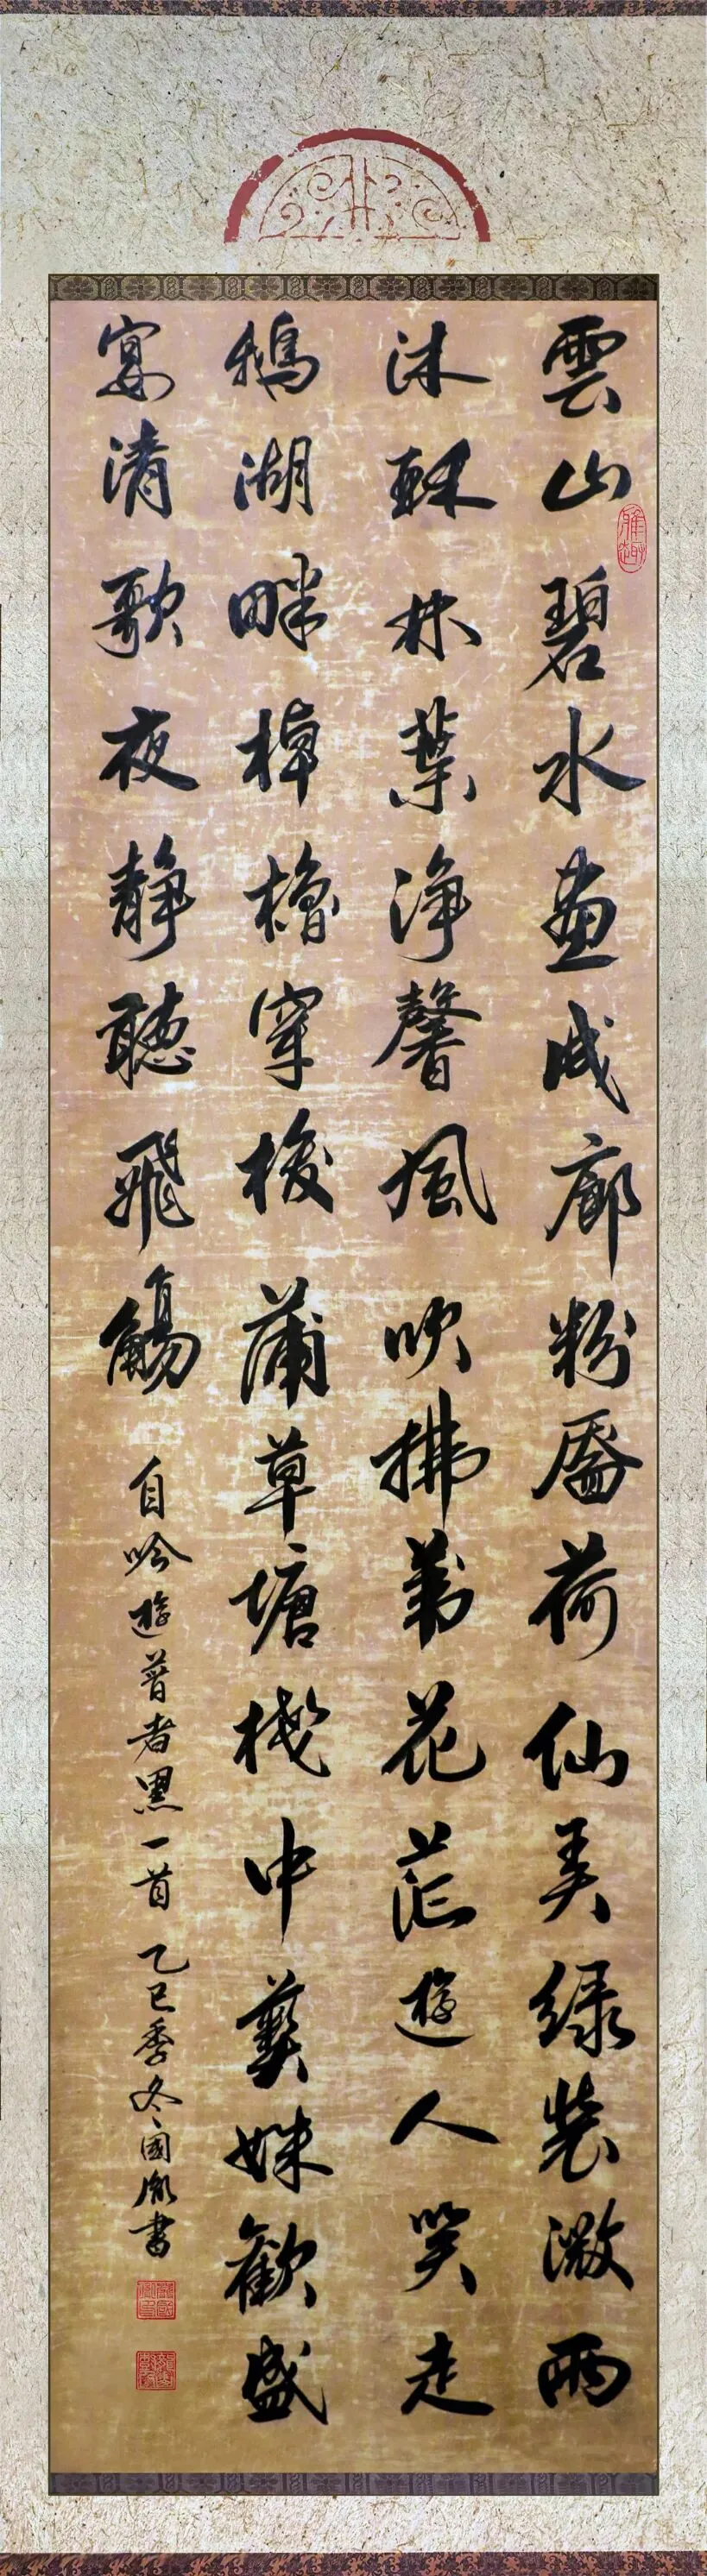 雲山碧水畫成廊粉靨荷仙美綠裝激雨
沐酥林葉淨馨風吹拂葦花茫遊人笑走
鵝湖畔棹櫓穿梭蒲草塘棧中藝妹歡盛
宴清歌夜靜聽飛觴
自吟遊普者黑一首 乙巳季冬國胤書
雅趣